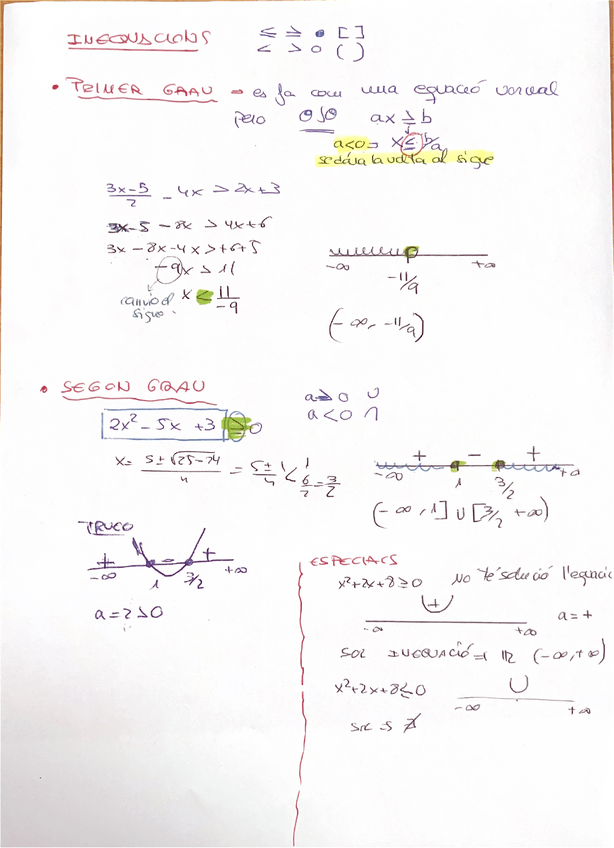 INEQUACIONS ≤ ≥ • [ ]
< > o ( )
• PRIMER GRAU → es fa com una equació normal
pero OJO ax ≥ b
a<0 → x ≤ b/a
se dóna la volta al signe
(3x-5)/2 - 4x > 2x+3
3x-5 - 8x > 4x+6
3x - 8x - 4x > +6+5
-9x > 11
canvio el signe. x < 11/-9
-∞ -11/9 +∞
(-∞, -11/9)
• SEGON GRAU
a>0 ∪
a<0 ∩
2x² - 5x + 3 ≥ 0
x = (5±√25-24)/4 = (5±1)/4 < 1
6/4 = 3/2
+ - +
-∞ 1 3/2 +∞
(-∞, 1] ∪ [3/2, +∞)
TRUCO
+ - +
-∞ 1 3/2 +∞
a=2>0
ESPECIALS
x²+2x+8≥0 No té solució l'equació
+
-∞ +∞ a=+
SOL INEQUACIÓ → ℝ (-∞,+∞)
x²+2x+8≤0 ∪
-∞ +∞
SOL → ∄